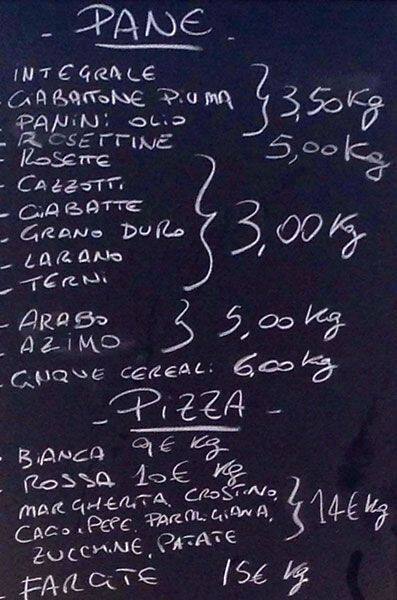 - PANE -
INTEGRALE
- CIABATTONE PIUMA } 3,50 Kg
- PANINI OLIO
- ROSETTINE 5,00 Kg
- ROSETTE
- CAZZOTTI
- CIABATTE
- GRANO DURO } 3,00 Kg
- LARANO
- TERNI
- ARABO } 5,00 Kg
- AZIMO
- CINQUE CEREALI 6,00 Kg
- PIZZA -
- BIANCA 9€ Kg
- ROSSA 10€ Kg
- MARGHERITA, CROSTINO,
CACIO, PEPE, PARMIGIANA, } 14€ Kg
ZUCCHINE, PATATE
- FARCITE 15€ Kg